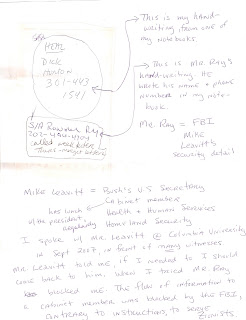 This is my hand-
writing, from one of
my notebooks.
HEM
Dick
301-443
1541
This is Mr. Ray's
hand-writing. HE
wrote his name + phone
number in my note-
book.
S/A Rowman Ray
called week before
Mr. Ray = FBI
Mike
Leavitt's
security detail
Mike Leavitt = Bush's U.S. Secretary
has lunch
w/ the president,
regularly
Cabinet member
Health + Human Services
Homeland Security
I spoke w/ Mr. Leavitt @ Columbia University
in Sept 2007, in front of many witnesses.
Mr. Leavitt told me, if I needed to I should
come back to him. When I tried Mr. Ray
blocked me. The flow of information to
a cabinet member was blocked by the FBI,
contrary to instruction, to serve
Zionists.